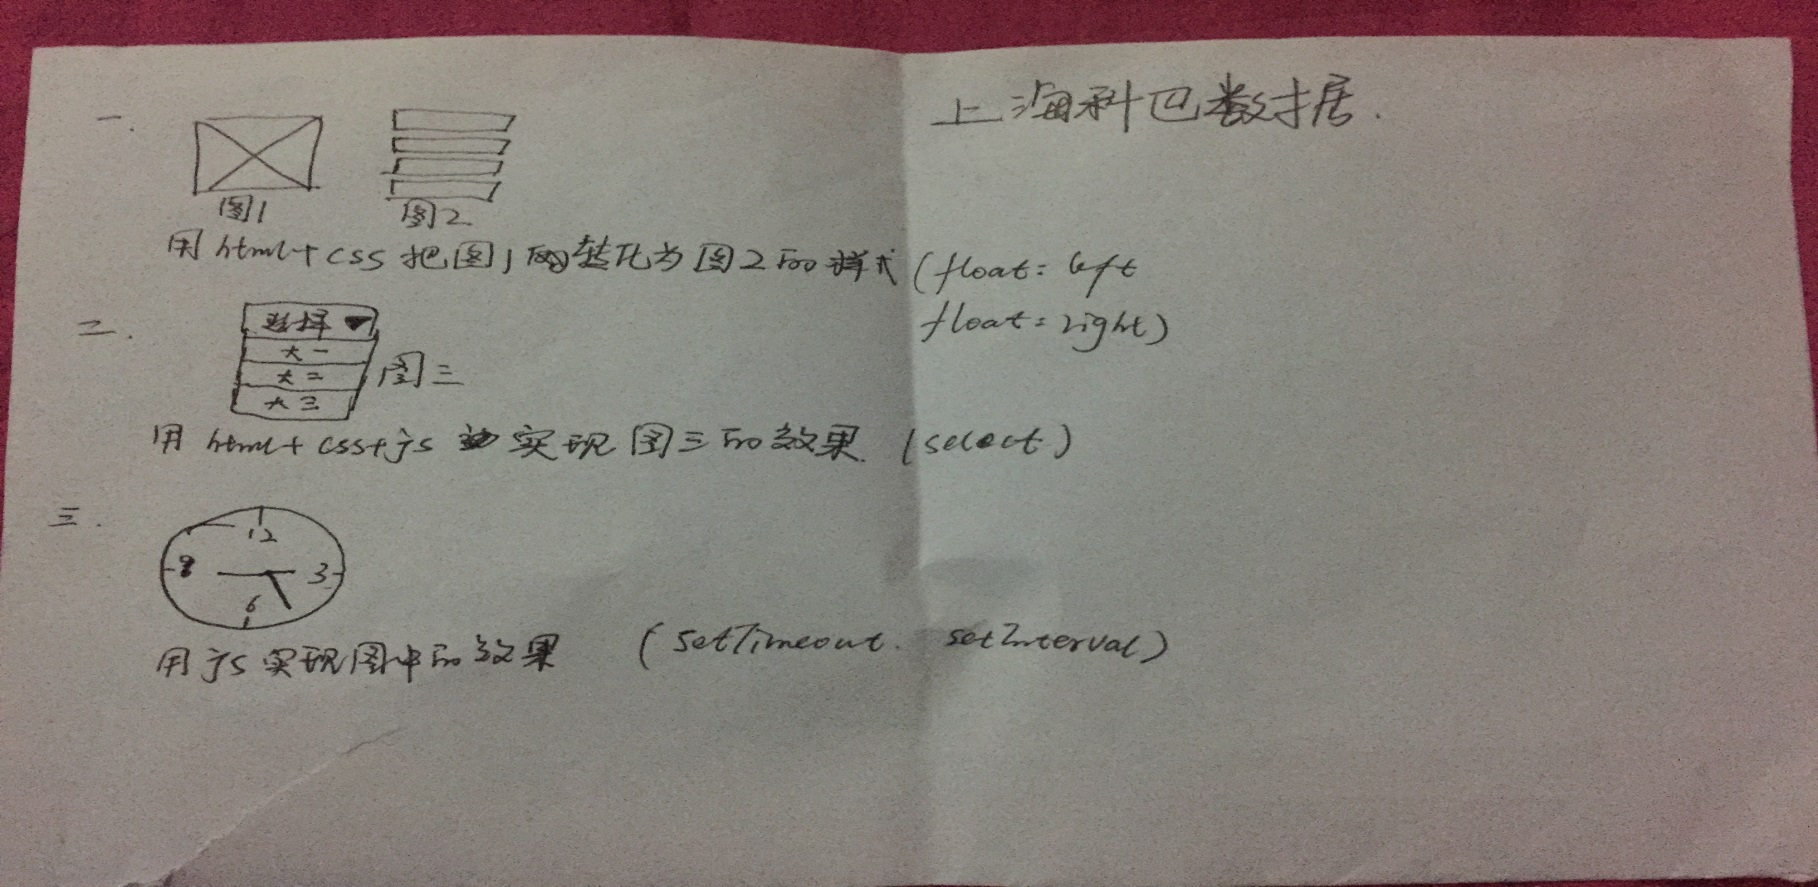 上海科巴数据.
一.
图1 图2
用html+css把图1的转化为图2的样式(float:left
float:right)
二.
选择
大一
大二
大三
图三
用html+css+js实现图三的效果.(select)
三.
12
9 3
6
用js实现图中的效果 (setTimeout. setInterval)